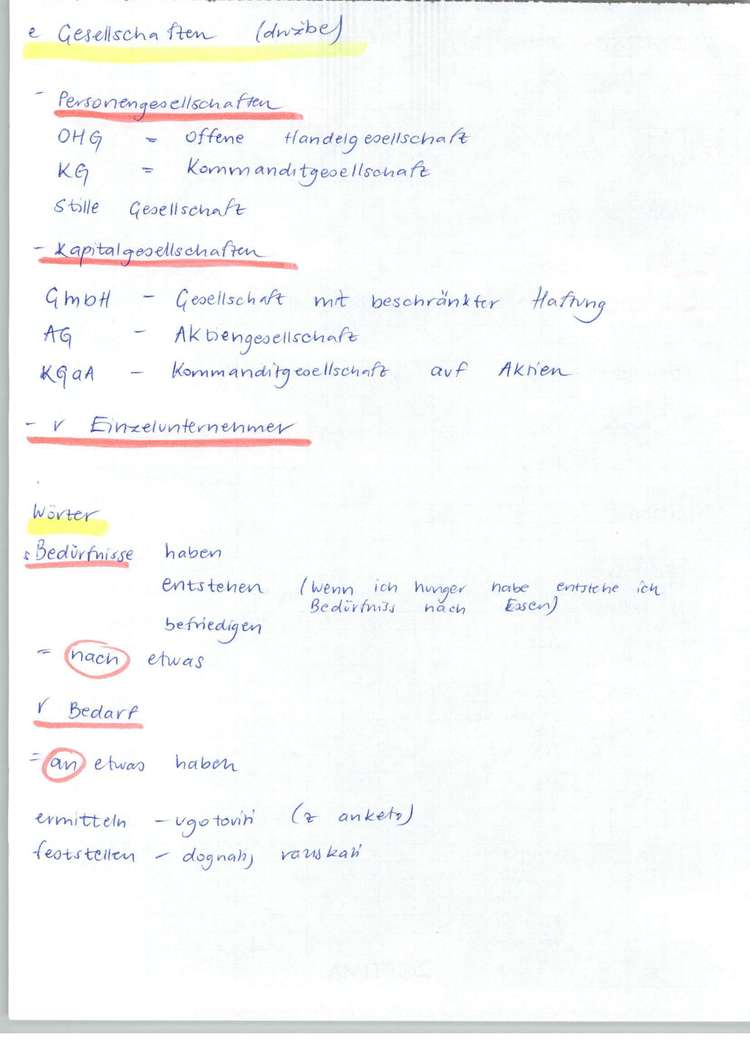 e Gesellschaften (družbe)
- Personengesellschaften
OHG = Offene Handelgesellschaft
KG = Kommanditgesellschaft
Stille Gesellschaft
- Kapitalgesellschaften
GmbH - Gesellschaft mit beschränkter Haftung
AG - Aktiengesellschaft
KGaA - Kommanditgesellschaft auf Aktien
- r Einzelunternehmer
Wörter
s Bedürfnisse haben
entstehen (wenn ich hunger habe entstehe ich
Bedürfniss nach Essen)
befriedigen
= nach etwas
r Bedarf
= an etwas haben
ermitteln - ugotoviti (z anketo)
feststellen - dognati, raziskati